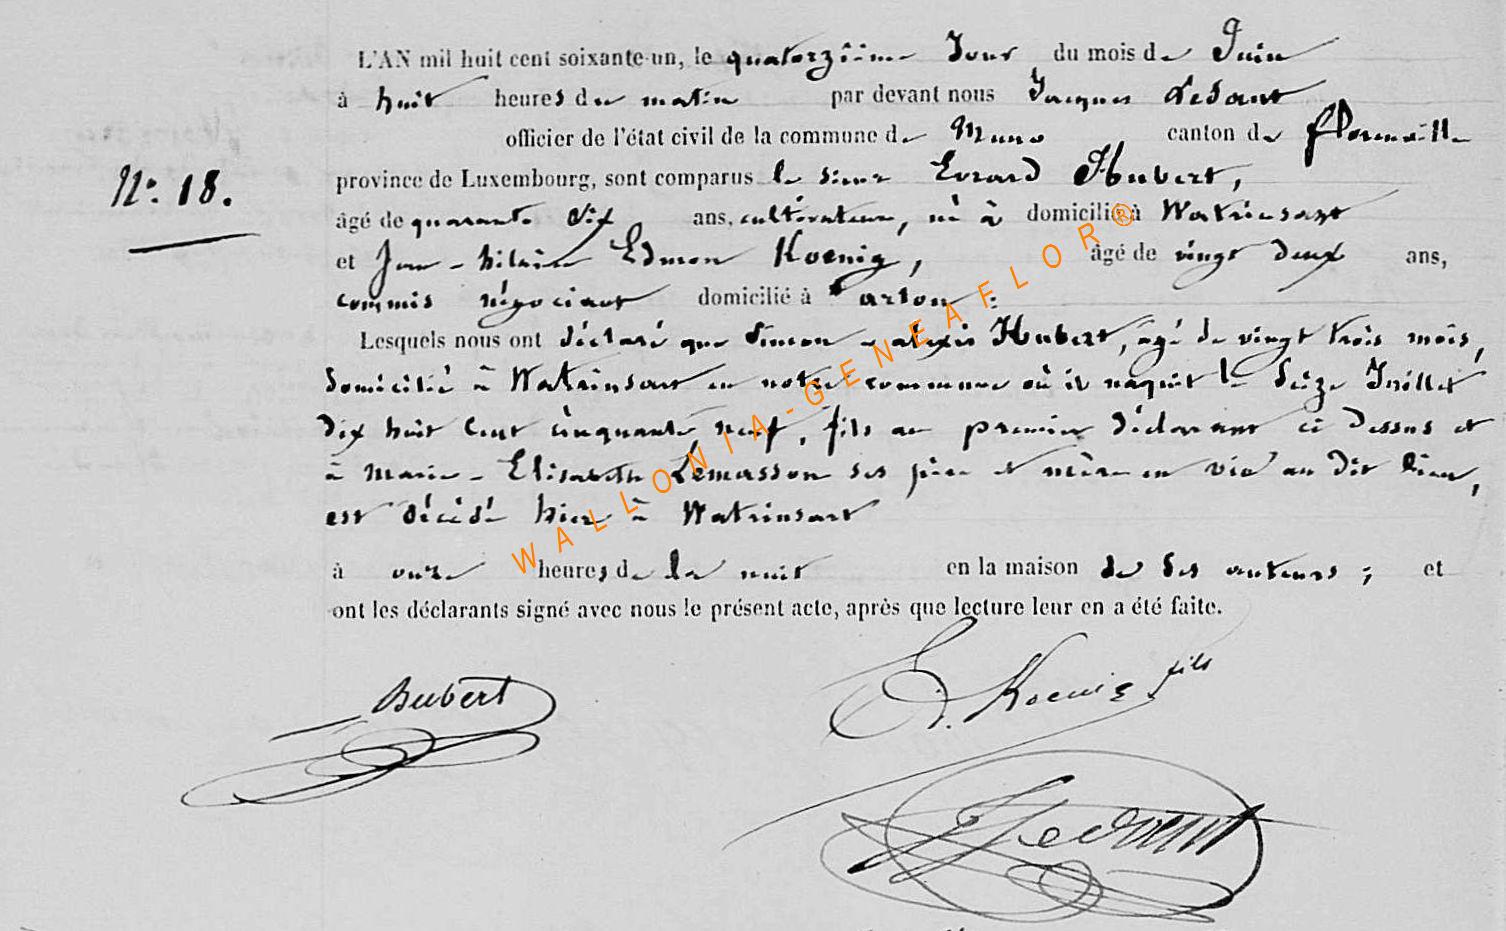 L'AN mil huit cent soixante-un, le quatorzième Jour du mois de Juin
à huit heures du matin par devant nous Jacques Ledant
officier de l'état civil de la commune de Muno canton de florenville
N.° 18.
province de Luxembourg, sont comparus le sieur Evrard Hubert,
âgé de quarante dix ans, cultivateur, né à domicilié à Watrinsart
et Jean-hilaire Edmon Koenig, âgé de vingt deux ans,
commis négociant domicilié à arlon ;
Lesquels nous ont déclaré que Simon-alexis Hubert, âgé de vingt trois mois,
domicilié à Watrinsart en notre commune où il naquit le Seize Juillet
dix huit Cent cinquante neuf, fils au premier déclarant ci dessus et
à Marie-Elisabeth Lemasson ses père et mère en vie au dit lieu,
est décédé hier à Watrinsart
à onze heures de la nuit en la maison de ses auteurs ; et
ont les déclarants signé avec nous le présent acte, après que lecture leur en a été faite.
Hubert
E. Koenig fils
J Ledant
WALLONIA-GENEAFLOR®